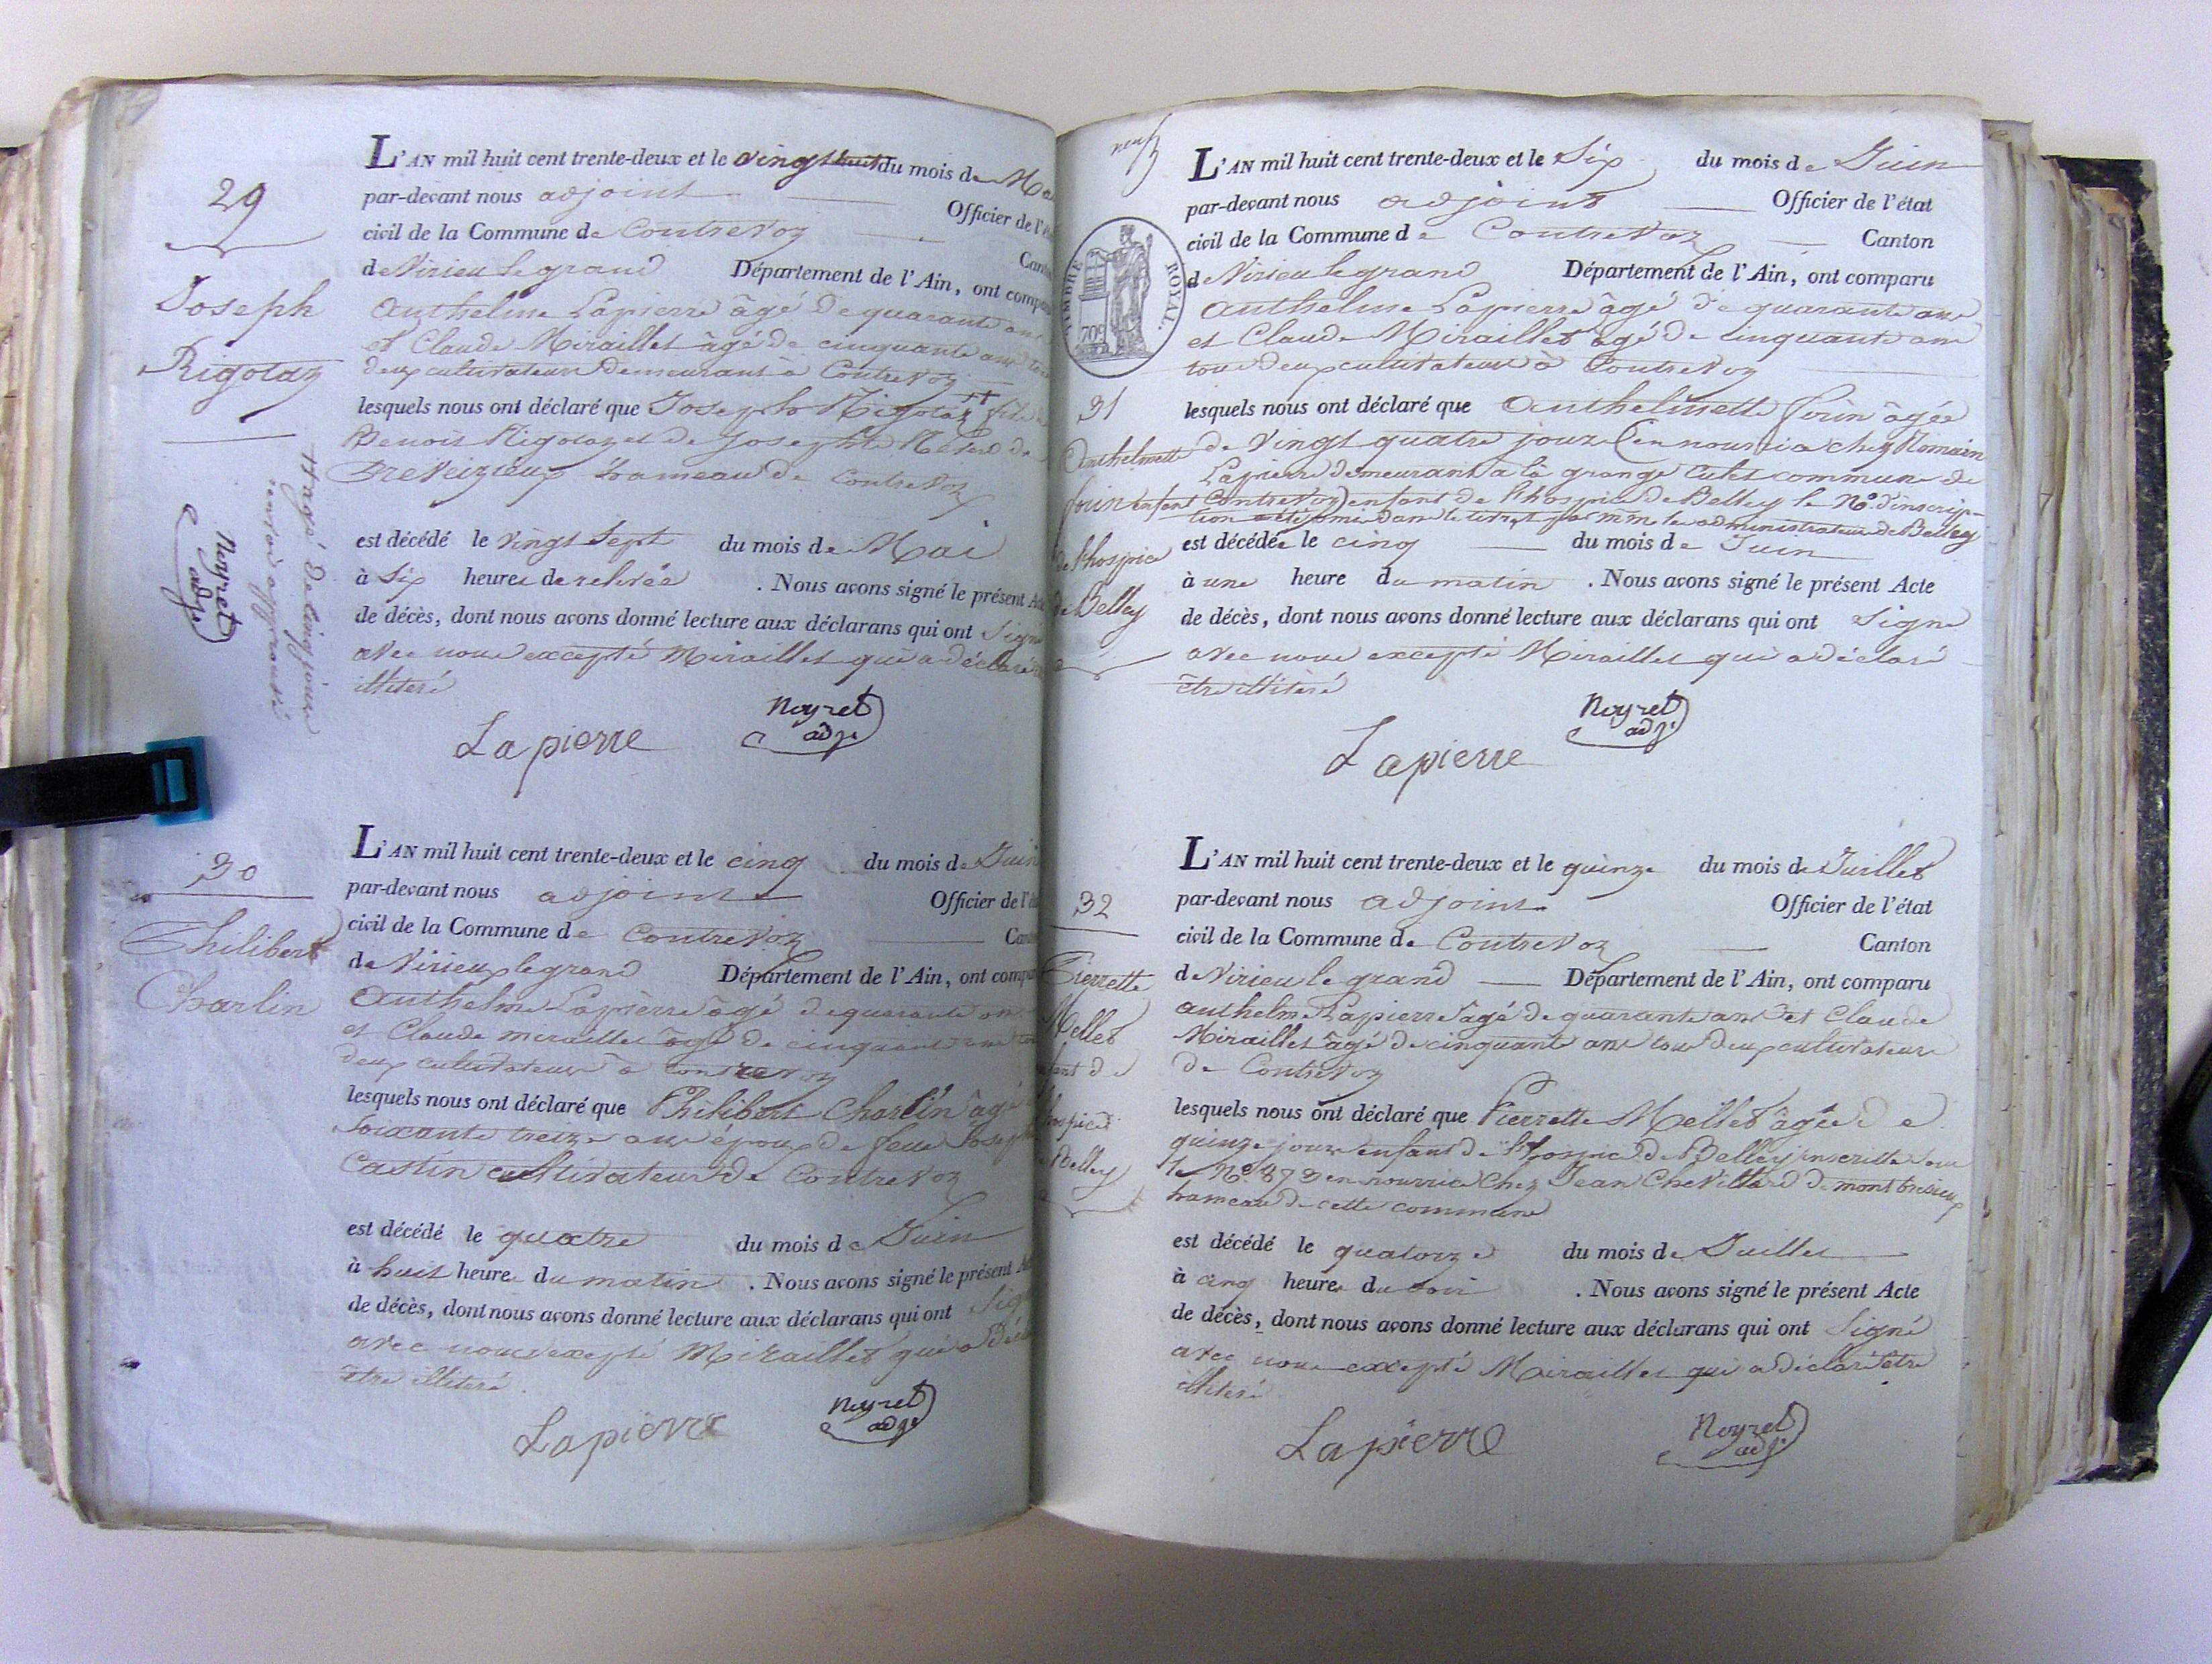 29
Joseph
Rigolaz
++ agé de cinq jours
renvoi approuvé
Neyret
adj.
L'AN mil huit cent trente-deux et le vingt huit du mois de Mai
par-devant nous adjoint Officier de l'état
civil de la Commune de Contrevoz Canton
de Virieu le grand Département de l'Ain, ont comparu
Anthelme Lapierre âgé de quarante ans
et Claude Miraillet âgé de cinquante ans tous
deux cultivateurs demeurant à Contrevoz
lesquels nous ont déclaré que Joseph Rigolaz ++ fils
Benoit Rigolaz et de Josephte de
Preveizieux hameau de Contrevoz
est décédé le vingt sept du mois de Mai
à six heures de relevée . Nous avons signé le présent Acte
de décès, dont nous avons donné lecture aux déclarans qui ont signé
avec nous excepté Miraillet qui a déclaré
illiteré
Lapierre
Neyret
adj.
30
Philibert
Charlin
L'AN mil huit cent trente-deux et le cinq du mois de Juin
par-devant nous adjoint Officier de l'état
civil de la Commune de Contrevoz Canton
de Virieux le grand Département de l'Ain, ont comparu
Anthelme Lapierre âgé de quarante ans
et Claude miraillet âgé de cinquante ans tous
deux cultivateurs à Contrevoz
lesquels nous ont déclaré que Philibert Charlin âgé
soixante treize ans époux de feue Joseph
Castin cultivateur de Contrevoz
est décédé le quatre du mois de Juin
à huit heures du matin . Nous avons signé le présent Acte
de décès, dont nous avons donné lecture aux déclarans qui ont signé
avec nous excepté Miraillet qui a déclaré
être illiteré
Lapierre
Neyret
adj.
neuf
TIMBRE ROYAL.
709
31
Anthelmette
fouin enfant
de l'hospice
de Belley
L'AN mil huit cent trente-deux et le Six du mois de Juin
par-devant nous adjoint Officier de l'état
civil de la Commune de Contrevoz Canton
de Virieu le grand Département de l'Ain, ont comparu
Anthelme Lapierre âgé de quarante ans
et Claude Miraillet âgé de cinquante ans
tous deux cultivateurs à Contrevoz
lesquels nous ont déclaré que Anthelmette fouin âgée
de vingt quatre jours (en nourrice chez Romain
Lapierre demeurant à la grange commune de
Contrevoz) enfant de l'hospice de Belley le No. d'inscrip-
tion a été omis dans le par mm les administrateurs de Belley
est décédée le cinq du mois de Juin
à une heure du matin . Nous avons signé le présent Acte
de décès, dont nous avons donné lecture aux déclarans qui ont signé
avec nous excepté Miraillet qui a déclaré
être illiteré
Lapierre
Neyret
adj.
32
Pierrette
Mellet
enfant de
hospice
Belley
L'AN mil huit cent trente-deux et le quinze du mois de Juillet
par-devant nous adjoint Officier de l'état
civil de la Commune de Contrevoz Canton
de Virieu le grand Département de l'Ain, ont comparu
anthelme Lapierre âgé de quarante ans et Claude
Miraillet âgé de cinquante ans tous deux cultivateurs
de Contrevoz
lesquels nous ont déclaré que Pierrette Mellet âgée de
quinze jours enfant de l'hospice de Belley inscritte sous
le No. 873 en nourrice chez Jean Chevillard de montbreizieux
hameau de cette commune
est décédé le quatorze du mois de Juillet
à cinq heures du soir . Nous avons signé le présent Acte
de décès, dont nous avons donné lecture aux déclarans qui ont signé
avec nous excepté Miraillet qui a déclaré être
illiteré
Lapierre
Neyret
adj.